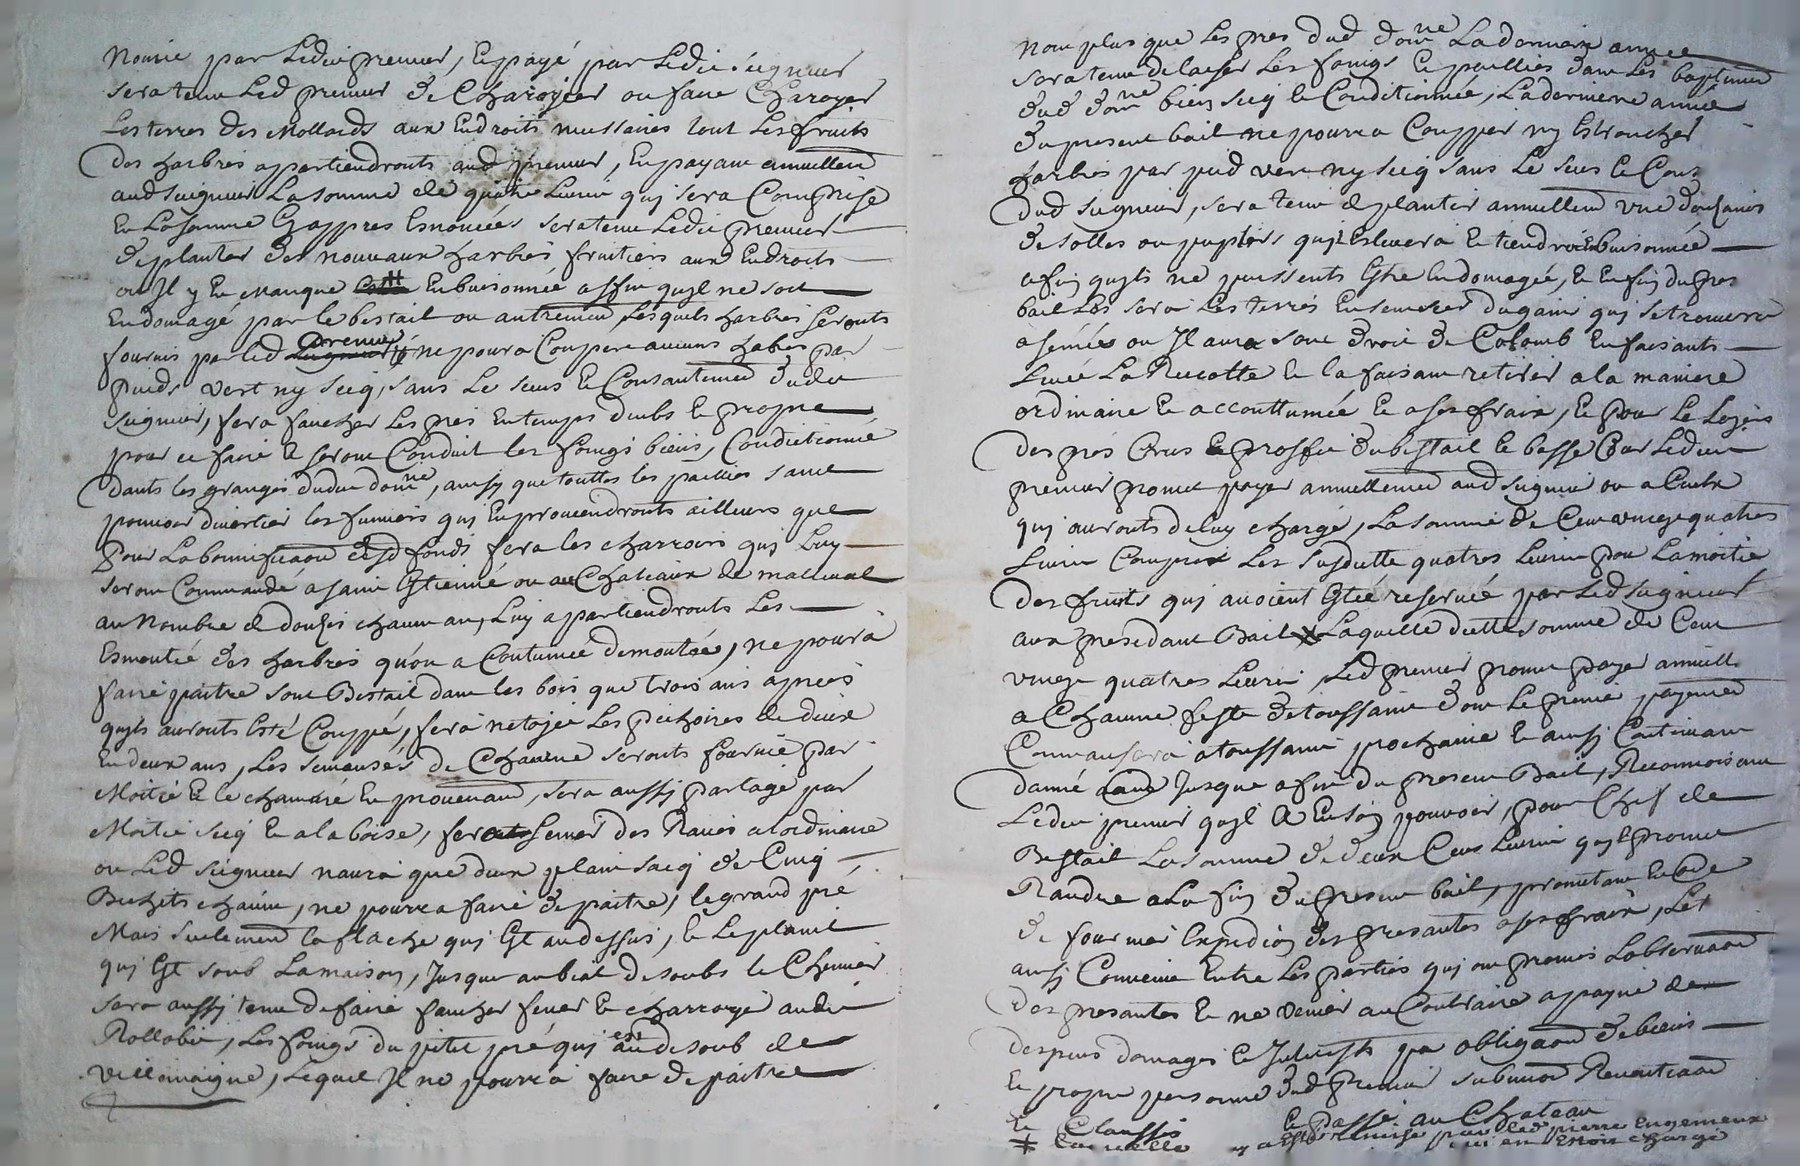 Nourie par Ledit preneur, Et payé par Ledit seigneur
sera tenu Led preneur de Charoyer ou faire Charoyer
Les terres des Mollards aux Endroits nessaires tout Les fruits
des harbres apartiendronts aud preneur, En payant annuellemt
aud seigneur La somme de quatre Livres qui sera Comprise
En La somme Cy appres Enoncées sera tenu Ledit preneur
de planter des nouveaux harbres fruitiers aux Endroits
ou Il y En manque Enbuisonnée affin quil ne soit
Endomagé par le bestail ou autrement Lesquels harbres seronts
fournis par led preneur ne poura Couper aucuns habres par
pieds vert ny secq, sans Le sceus Et Consantement dudit
seigneur, fera faucher Les prés En temps dubs Et propre
pour ce faire Et seront Conduit les foings biens Conditionné
dants les granges dudit domne, ainsy que touttes les pailles sans
pouvoir divertier les fumiers qui En proviendronts ailleurs que
pour La bonnification desd fonds fera les charrois qui Luy
seront Commandé a saint Etienne ou au Chateaux de malleval
au Nombre de douzes chacun an, Luy apartiendronts Les
Esmontée des harbres qu'on a Coutumee demontée, ne poura
faire paitre sont Bestail dans les bois que trois ans apprés
quils auronts Esté Couppé, fera netojer Les pechoires de deux
En deux ans, Les semensés de Chanvre seronts fournie par
Moitié Et le chanvre En provenant, sera aussy partagé par
Moitié secq Et a la boise, fera semer des Raves a lordinaire
ou Led seigneur n'aura que deux plain sacq de Cinq
Bichets chacun, ne pourra faire de paitre, le grand pré
Mais seulement la flache qui Est audessus, Et Le planit
qui Est soub La maison, Jusque au biat desoubs le Chemin
sera aussy tenu de faire faucher fener Et charroyé audit
Rollobie, Les foings du petit pré qui est au desoub de
villemaigne, Lequel Il ne pourra faire de paitre
Non plus que Les prés dud domne La derniere année
sera tenu de laisser Les foings Et pailles dans Les baptiments
dud domne bien secq Et Conditionnée, La derniere année
du present bail ne pourra Coupper ny Ebrancher
harbres par pied vert ny secq sans Le sceus Et Cons
dud seigneur, sera tenu de planter annuellemt une douzaines
de solles ou puples quil Eslevera Et tiendra Enbuisonnée
afin quils ne puissents Estre Endomagée, Et En fin du pres
bail Les sera Les terres Ensemencer du grain qui se trouvera
asemée ou Il aura sont droit de Colomb En faisants
Livée La Recolte Et la faisant retirer a la maniere
ordinaire Et accouttumée Et a ses fraix, Et pour Le Loyer
des prés Crus Et prosfit du bestail Et basse Cour Ledit
preneur promet payer annuellement aud seigneur ou a Ceux
qui auronts de luy chargé, La somme de Cent vingt quatres
Livres Compris Les susditte quatres Livres pour La moitié
des fruits qui avoient Esté reservée par Led seigneur
aux presedant Bail Laquelle ditte somme de Cent
vingt quatres Livres, Led preneur promet payer annuell
a Chacune feste de toussaint dont Le premier payement
Commansera a toussaint prochaine Et ainsy Continuant
dannée Jusque a fin du present Bail, Reconnoissant
Ledit preneur quil A En son pouvoir, pour Chef de
Bestail La somme de deux Cent Livres quil promet
Randre a La fin du present bail, prometant Encore
de fournir Expedion des presantes a ses fraix, Le
ainsy Convenu Entre Les parties qui ont promis Lobservation
des presantes Et ne venir au Contraire a payne de
despens domages Et Interests par obligation de biens
Et propre personne dud preneur submion Renontiation
Et Clauses Et Passé au Chateau
Laquelle y a Esté remise par led pierre Engemieux
qui en Estoit chargé